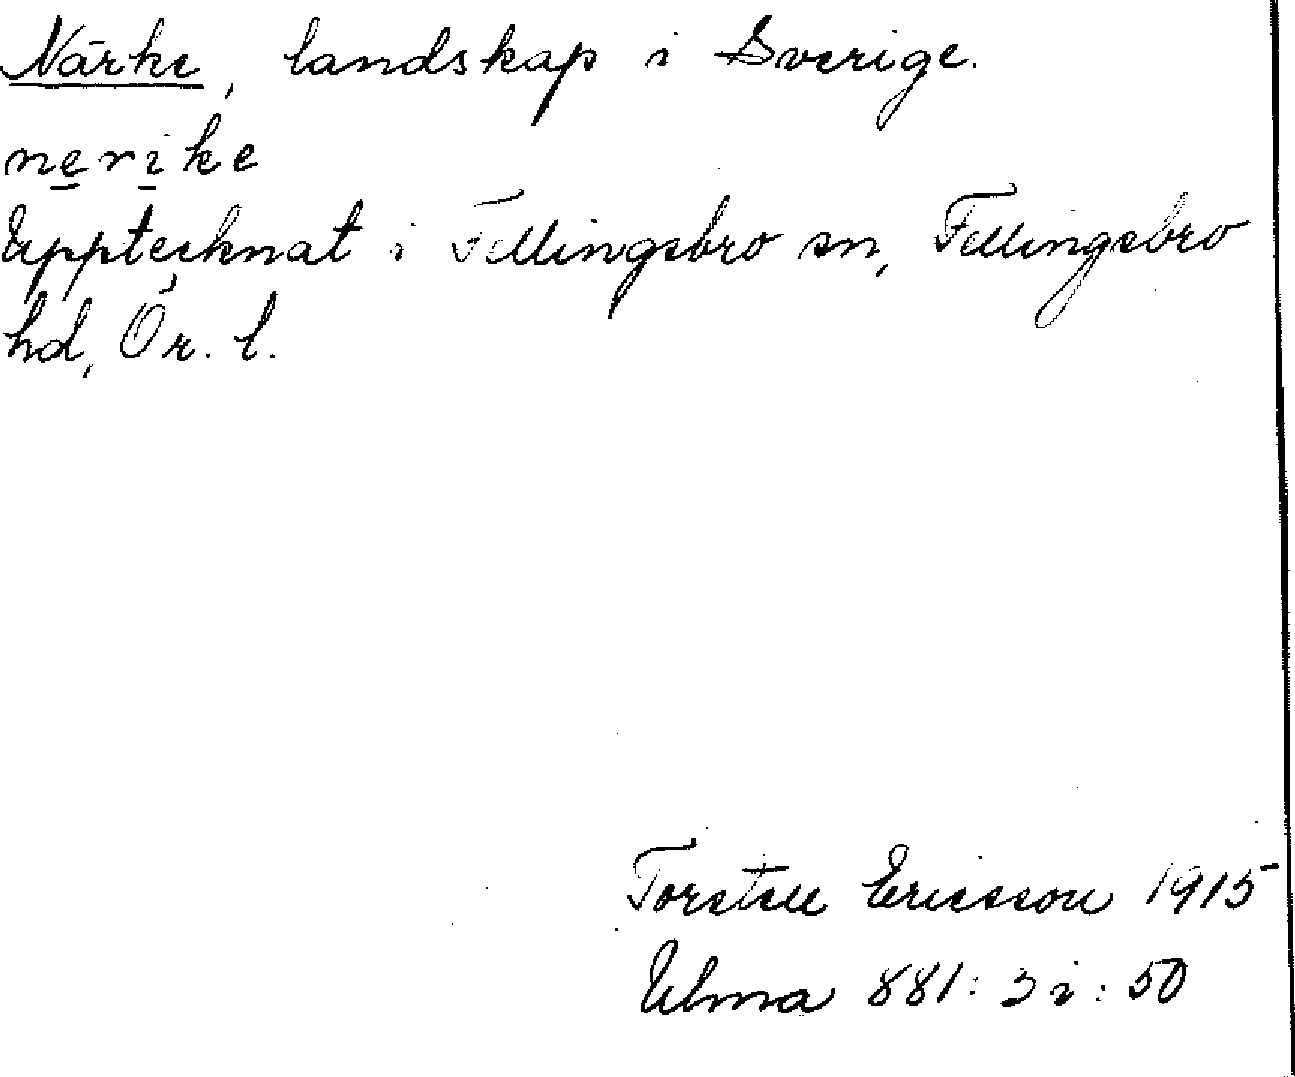 Närke, landskap i Sverige.
nerike
Upptecknat i Fellingsbro sn, Fellingsbro
hd, Ör. l.
Torsten Ericsson 1915
Ulma 881: 3 i: 50